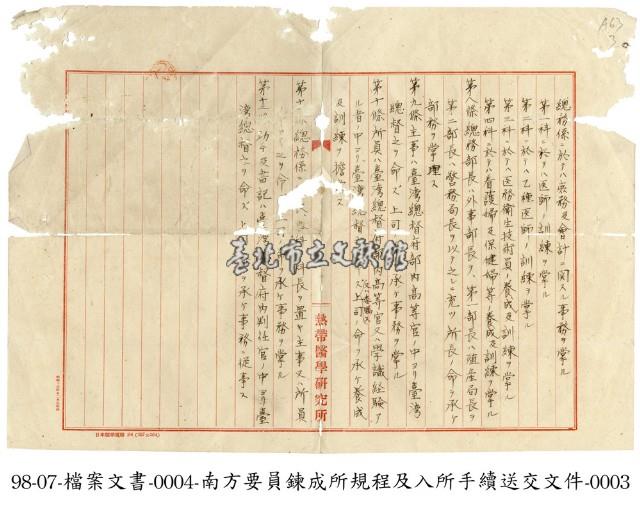 A63
3
總務係ニ於テハ庶務及会計ニ関スル事務ヲ掌ル
第一科ニ於テハ医師ノ訓練ヲ掌ル
第二科ニ於テハ乙種医師ノ訓練ヲ掌ル
第三科ニ於テハ医務衛生技術員ノ養成及訓練ヲ掌ル
第四科ニ於テハ看護婦及保健婦等ノ養成及訓練ヲ掌ル
第八條總務部長ハ外事部長ヲ、第一部長ハ殖産局長ヲ
第二部長ハ警務局長ヲ以テ之ニ充ツ所長ノ命ヲ承ケ
部務ヲ掌理ス
第九條主事ハ臺湾總督府部内高等官ノ中ヨリ臺湾
總督之ヲ命ズ上司ノ命ヲ承ケ事務ヲ掌ル
第十條所員ハ臺湾總督府部内高等官又ハ学識経験ア
ル者ノ中ヨリ臺湾總督之ヲ命ズ上司ノ命ヲ承ケ養成
及訓練ヲ擔
第十 總務係 科長ヲ置ケ主事又ハ所員
之ヲ命 承ケ事務ヲ掌ル
第十二 助手及書記ハ臺湾總督府部内判任官ノ中ヨリ臺
湾總督之ヲ命ズ上 ヲ承ケ事務ニ従事ス
熱帶醫學研究所
臺北市立文獻館
98-07-檔案文書-0004-南方要員鍊成所規程及入所手續送交文件-0003